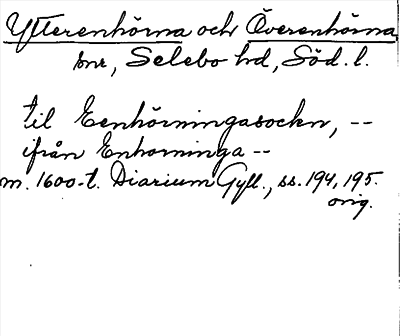 Ytterenhörna och Överenhörna
snr, Selebo hd, Söd. l.
til Eenhörningasockn, --
ifrån Enhorninga --
m. 1600-t. Diarium Gyll., ss. 194, 195.
orig.